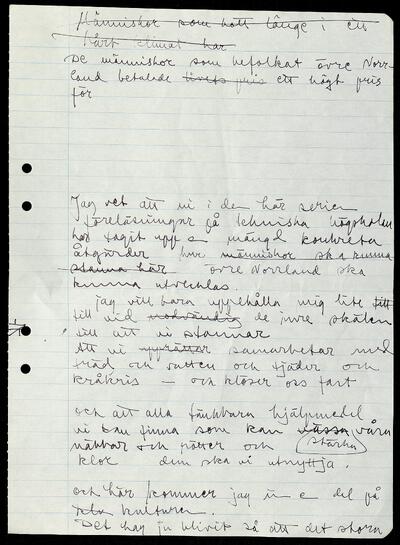 Människor som bott länge i ett
hårt climat har
De människor som befolkat övre Norr-
land betalade livets pris ett högt pris
för
Jag vet att vi i den här serien
föreläsningar på tekniska högskolan
har tagit upp en mängd konkreta
åtgärder hur människor ska kunna
stanna här övre Norrland ska
kunna utvecklas.
jag vill bara uppehålla mig lite till
till vid nödvändig de inre skälen
till att vi stannar
Att vi upprättar samarbetar med
träd och vatten och fjäder och
kråkris – och klöser oss fast
och att alla tänkbara hjälpmedel
vi kan finna som kan vässa våra
näbbar och fötter och stärka
klor dem ska vi utnyttja.
och här kommer jag in en del på
kulturen.
Det har ju blivit så att det stora